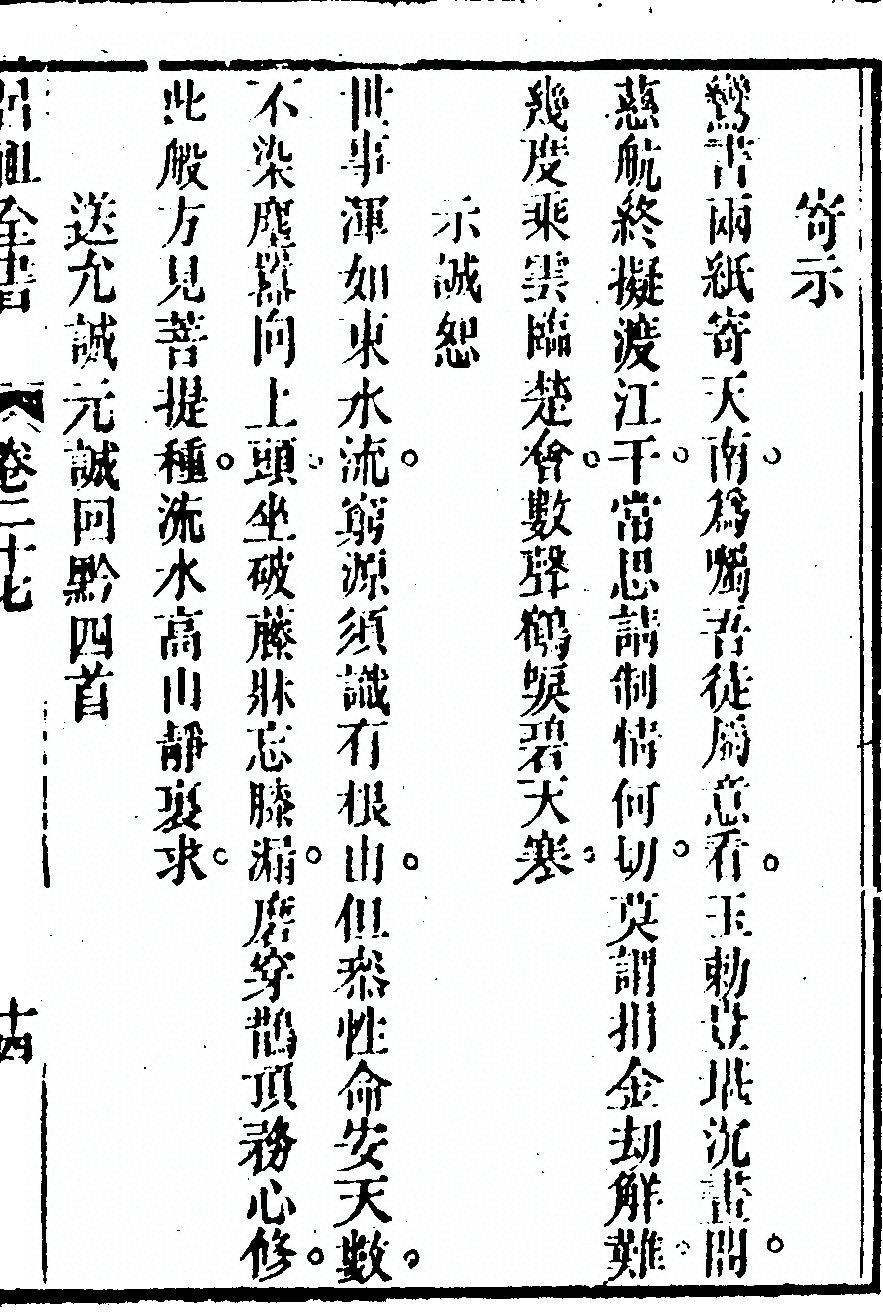 寄示
鸞書兩紙寄天南為囑吾徒屬意看玉勅豈堪沉畫閣
慈航終擬渡江干常思請制情何切莫謂捐金劫解難
幾度乘雲臨楚會數聲鶴唳碧天寒
示誠恕
世事渾如東水流窮源須識有根由但叅性命安天數
不染塵囂向上頭坐破藤牀忘膝漏磨穿鵲頂務心修
此般方見菩提種流水高山靜裏求
送允誠元誠回黔四首
呂祖全書 卷二十七 十四